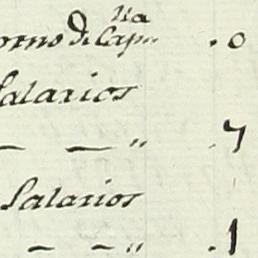 orno de Cap.lla .0
Salarios
— — " .7
Salarios
— — " .1